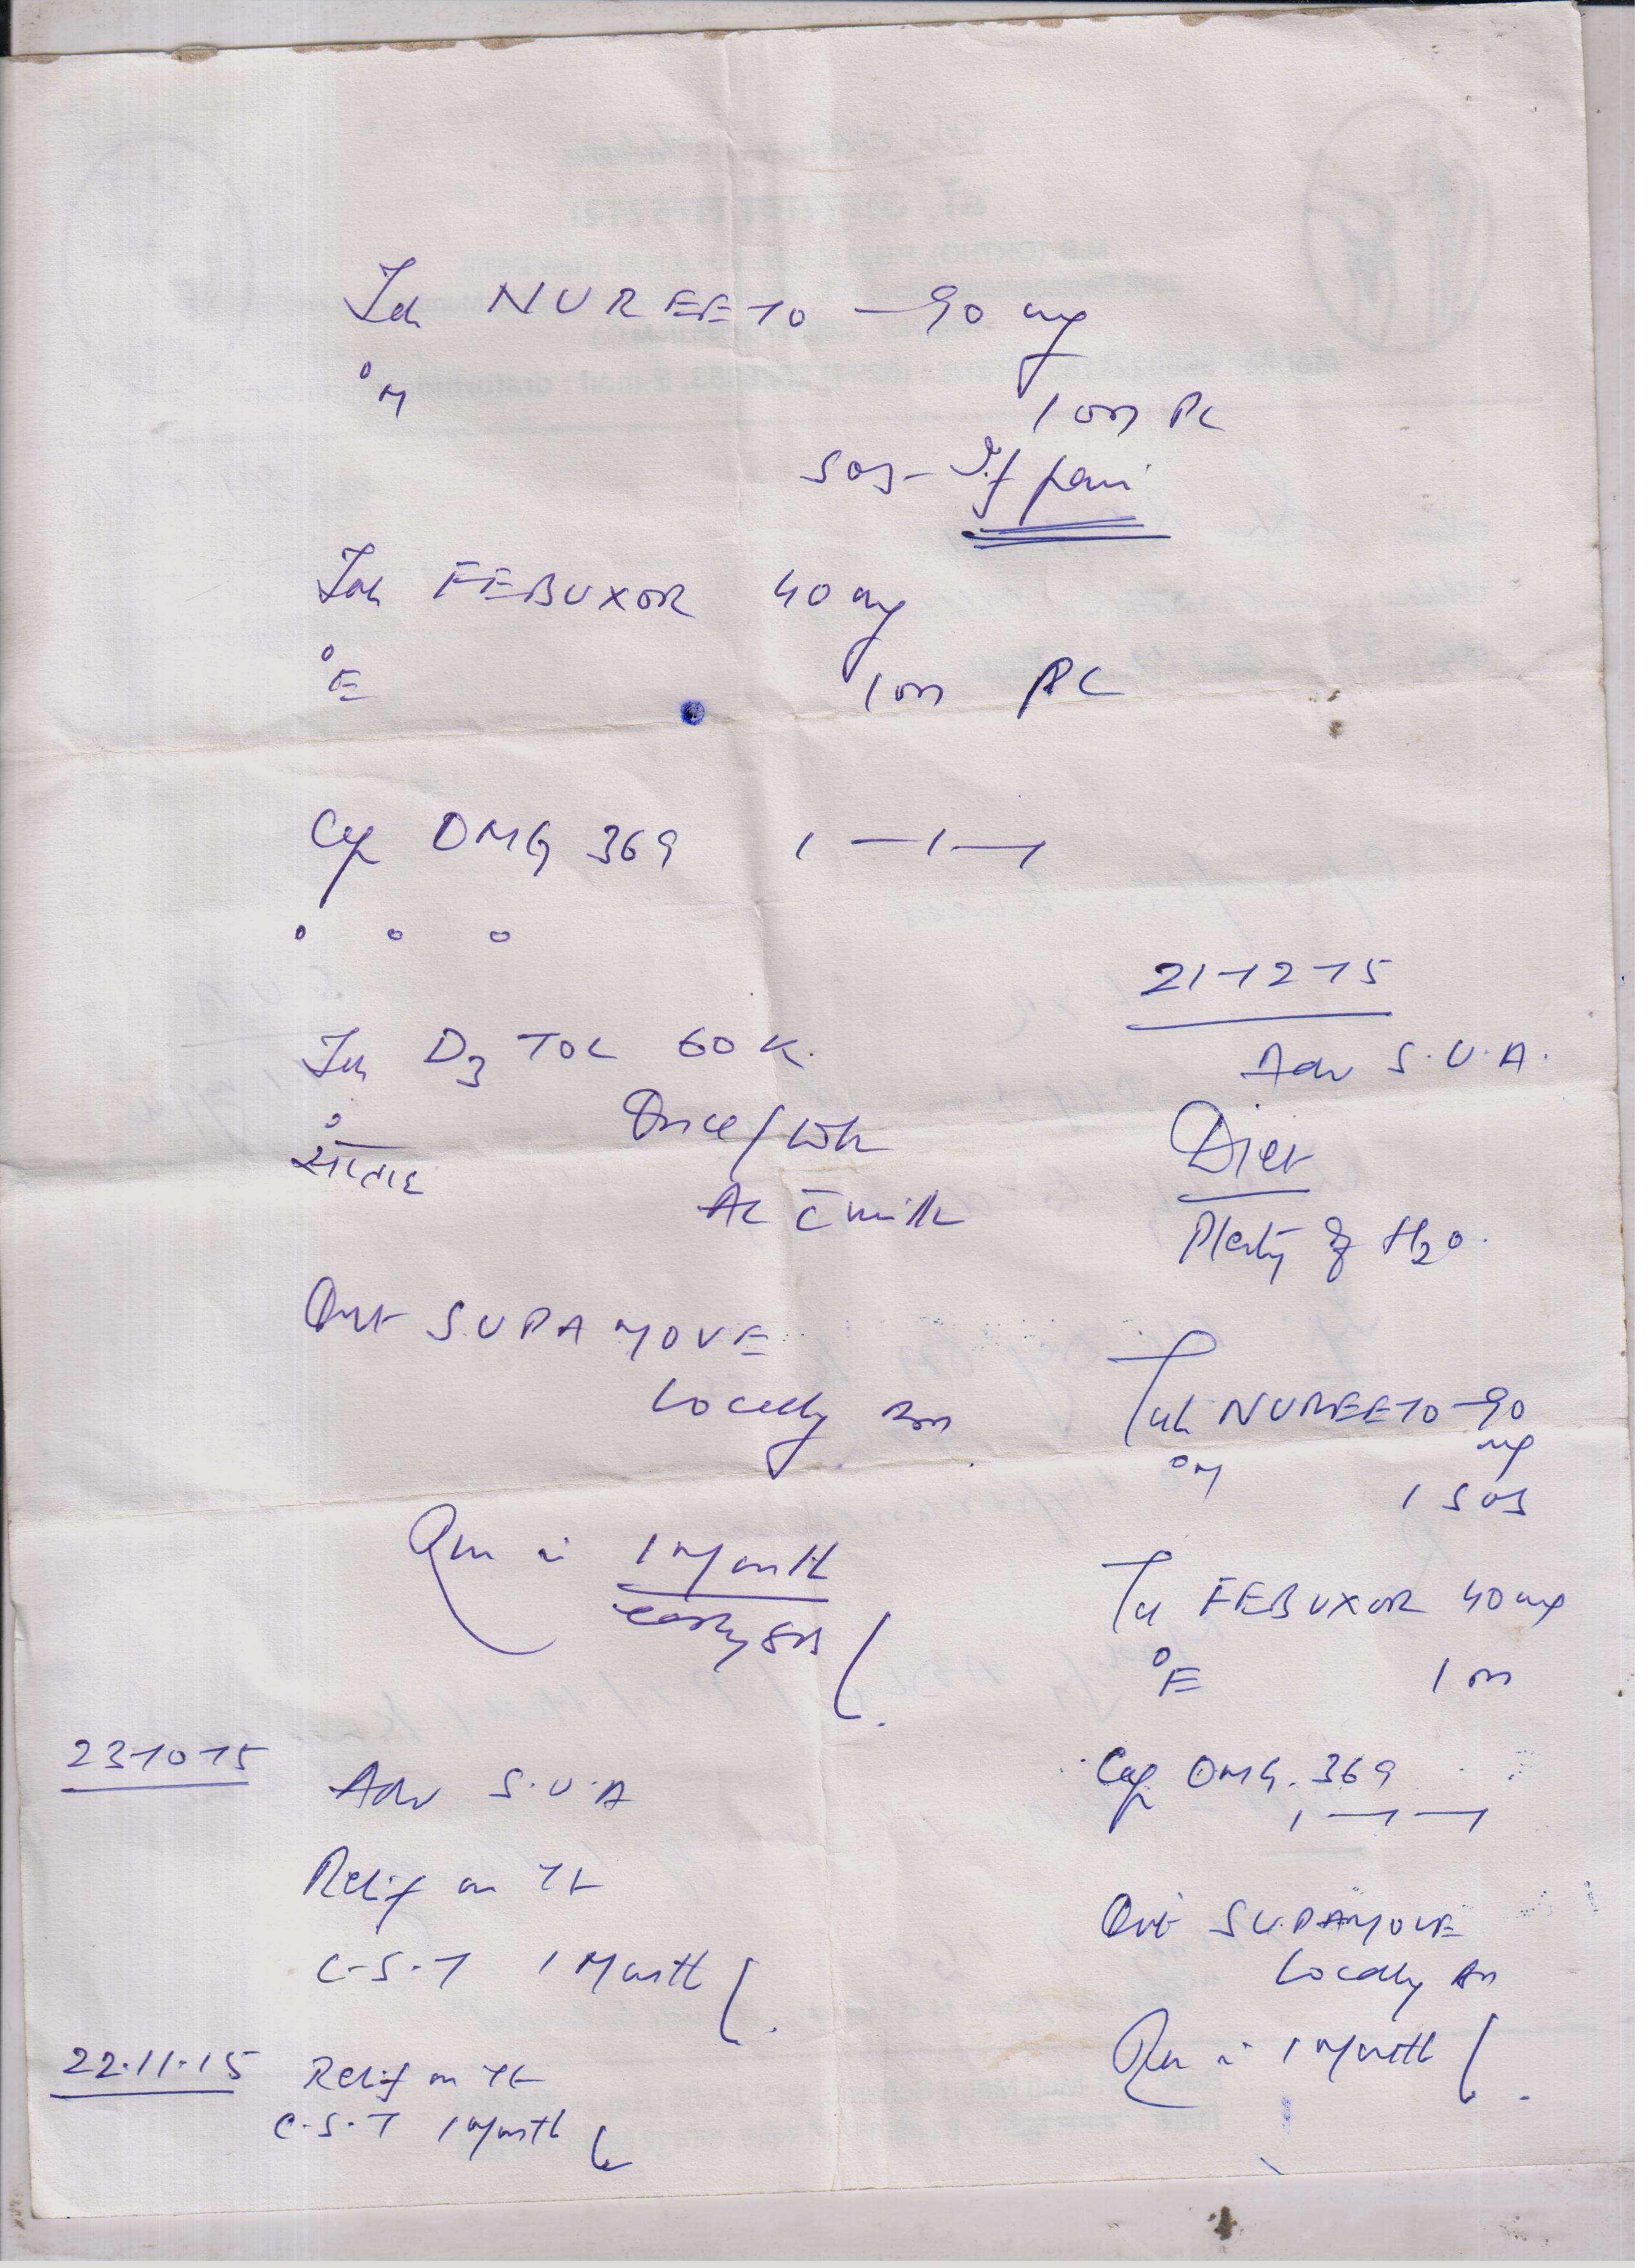 Tab NUREETO-90 mg
M
1 on PC
SOS-If pain
Tab FEBUXOR 40 mg
E
1 on PC
Cap OMG 369 1-1-1
Tab D3 TOL 60 K.
Once/wk
Ac c̄ milk
Oint SUPAMOVE
Locally
in 1 Month
23-10-15
Adv S.U.A
Relif on Tt
C.S.T 1 Month
22.11.15
Relif on Tt
C.S.T 1 Month
21-12-15
Adv S.U.A.
Diet
Plenty of H2O.
Tab NUREETO-90
mg
M
1 SOS
Tab FEBUXOR 40mg
E
1 on
Cap OMG. 369
1-1-1
Oint SUPAMOVE
Locally
in 1 Month